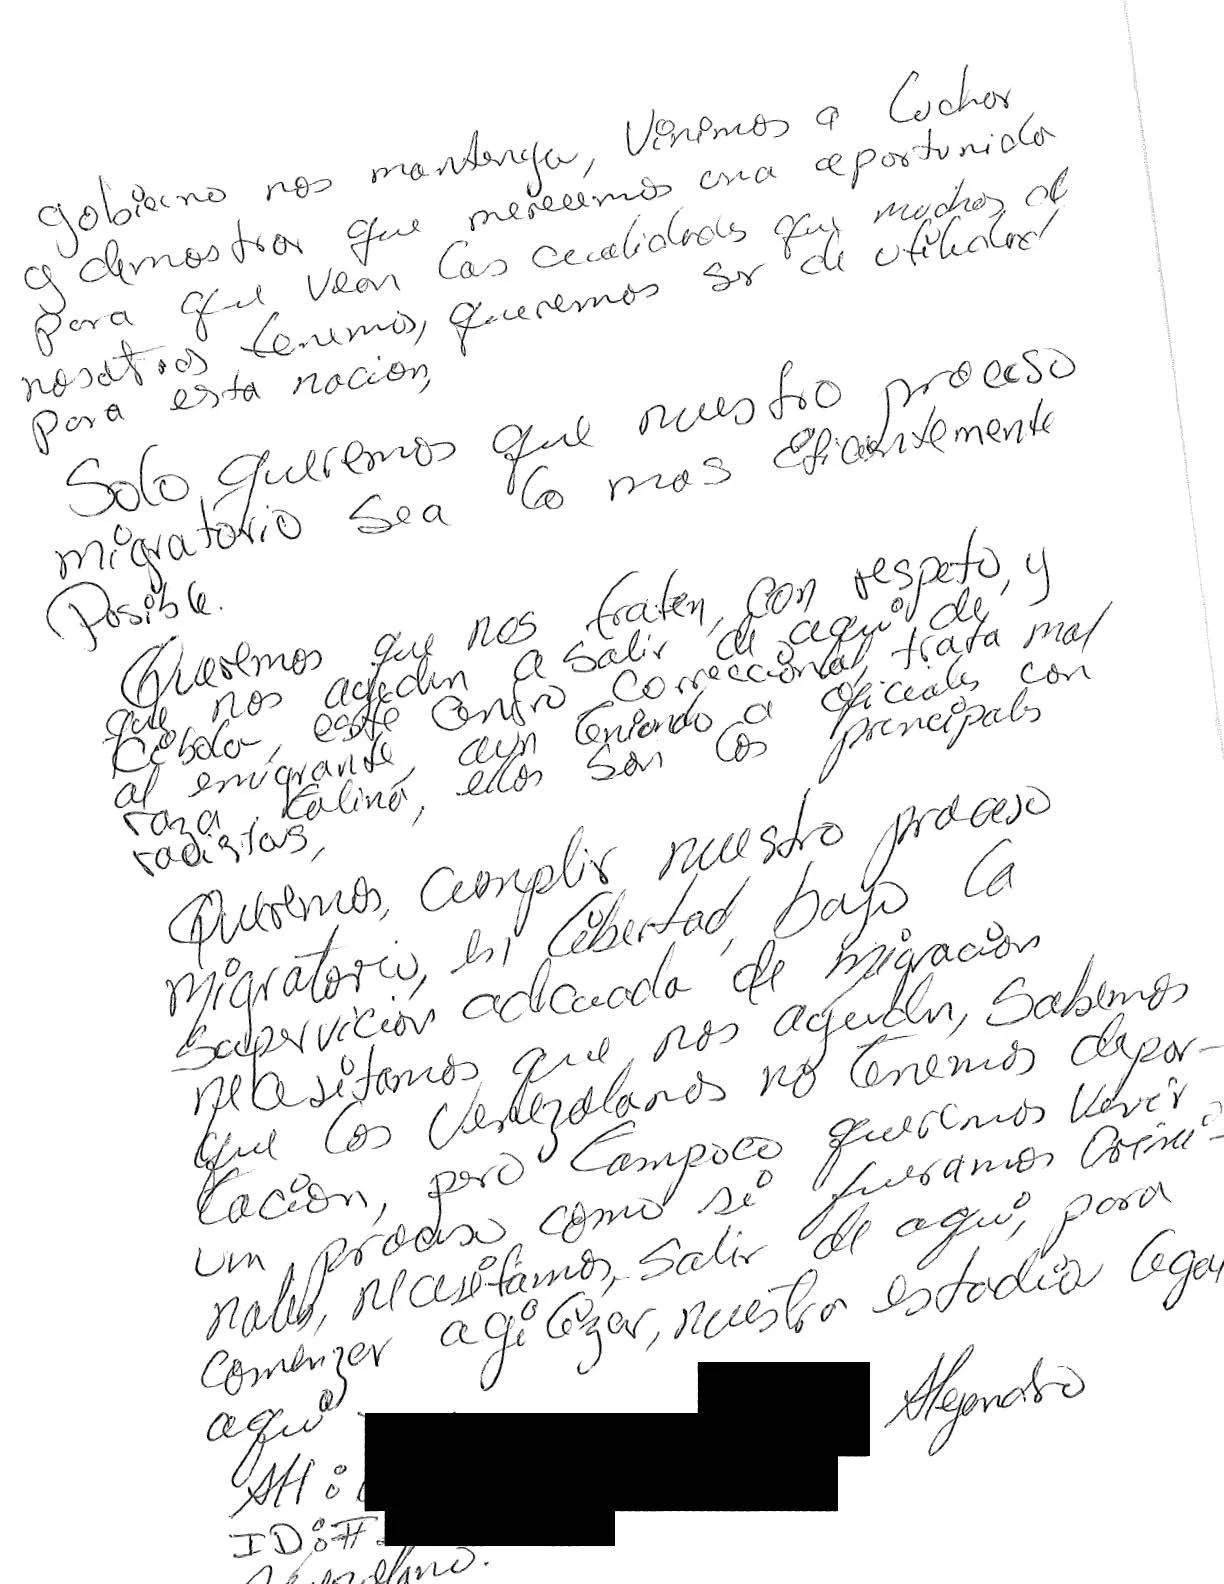 gobierno nos mantenga, Vinimos a luchar
y demostrar que merecemos una oportunida
para que vean las cualidades que muchos de
nosotros tenemos, queremos ser de utilidad
para esta nacion,
Solo queremos que nuestro proceso
migratorio sea lo mas Eficientemente
Posible.
Queremos que nos traten, con respeto, y
que nos ayuden a salir de aqui de
Cibola, este Centro Correccional, trata mal
al emigrante, aun teniendo a oficiales con
raza latina, ellos son los principales
racistas,
Queremos, cumplir nuestro proceso
migratorio, en libertad, bajo la
supervicion adecuada de migracion
necesitamos que nos ayuden, Sabemos
que los Venezolanos no tenemos depor-
tacion, pero tampoco queremos vivir
un proceso como si fueramos Crimi-
nales, necesitamos, salir de aqui, para
comenzar agilizar, nuestra estadia legal
aqui
Alejandro
Att:
ID:#
Venezolano.